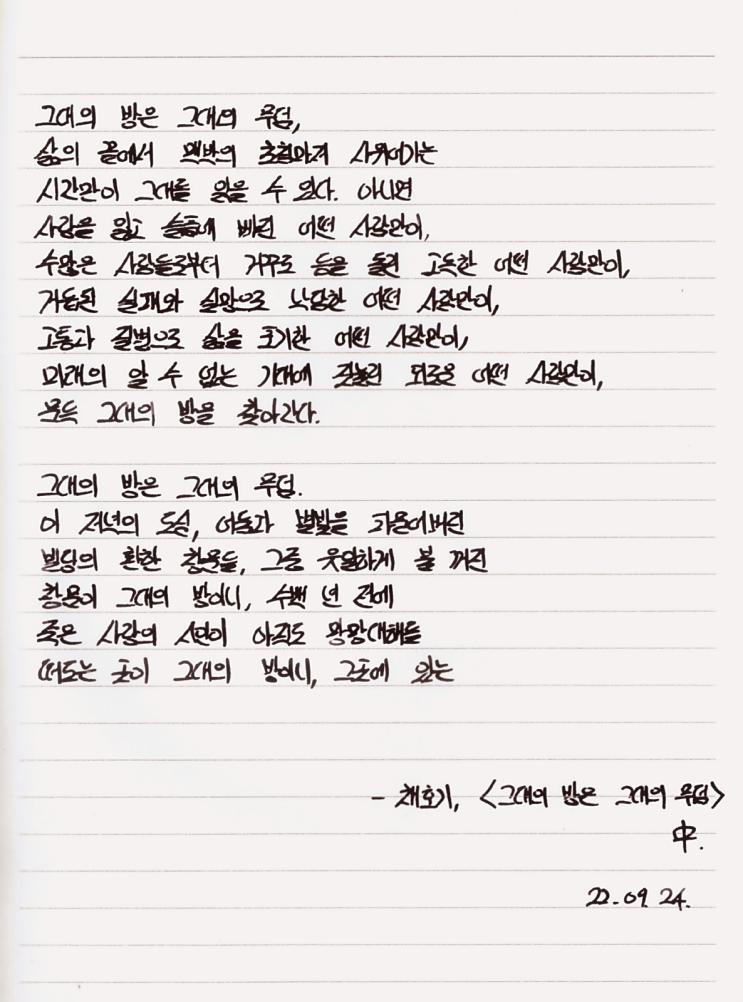 그대의 방은 그대의 무덤,
삶의 끝에서 맥박의 초침마저 사위어가는
시간만이 그대를 잊을 수 있다. 아니면
사랑을 잃고 슬픔에 빠진 어떤 사람만이,
수많은 사람들로부터 거꾸로 등을 돌린 고독한 어떤 사람만이,
거듭된 실패와 실망으로 낙담한 어떤 사람만이,
고통과 질병으로 삶을 포기한 어떤 사람만이,
미래의 알 수 없는 기대에 짓눌린 외로운 어떤 사람만이,
문득 그대의 방을 찾아간다.
그대의 방은 그대의 무덤.
이 저녁의 도심, 어둠과 별빛을 지운
빌딩의 환한 창문들, 그중 유일하게 불 꺼진
창문이 그대의 방이니, 수백 년 전에
죽은 사람의 시선이 아직도 망망대해를
떠도는 곳이 그대의 방이니, 그곳에 있는
- 채호기, 〈그대의 방은 그대의 무덤〉
中.
22.09 24.